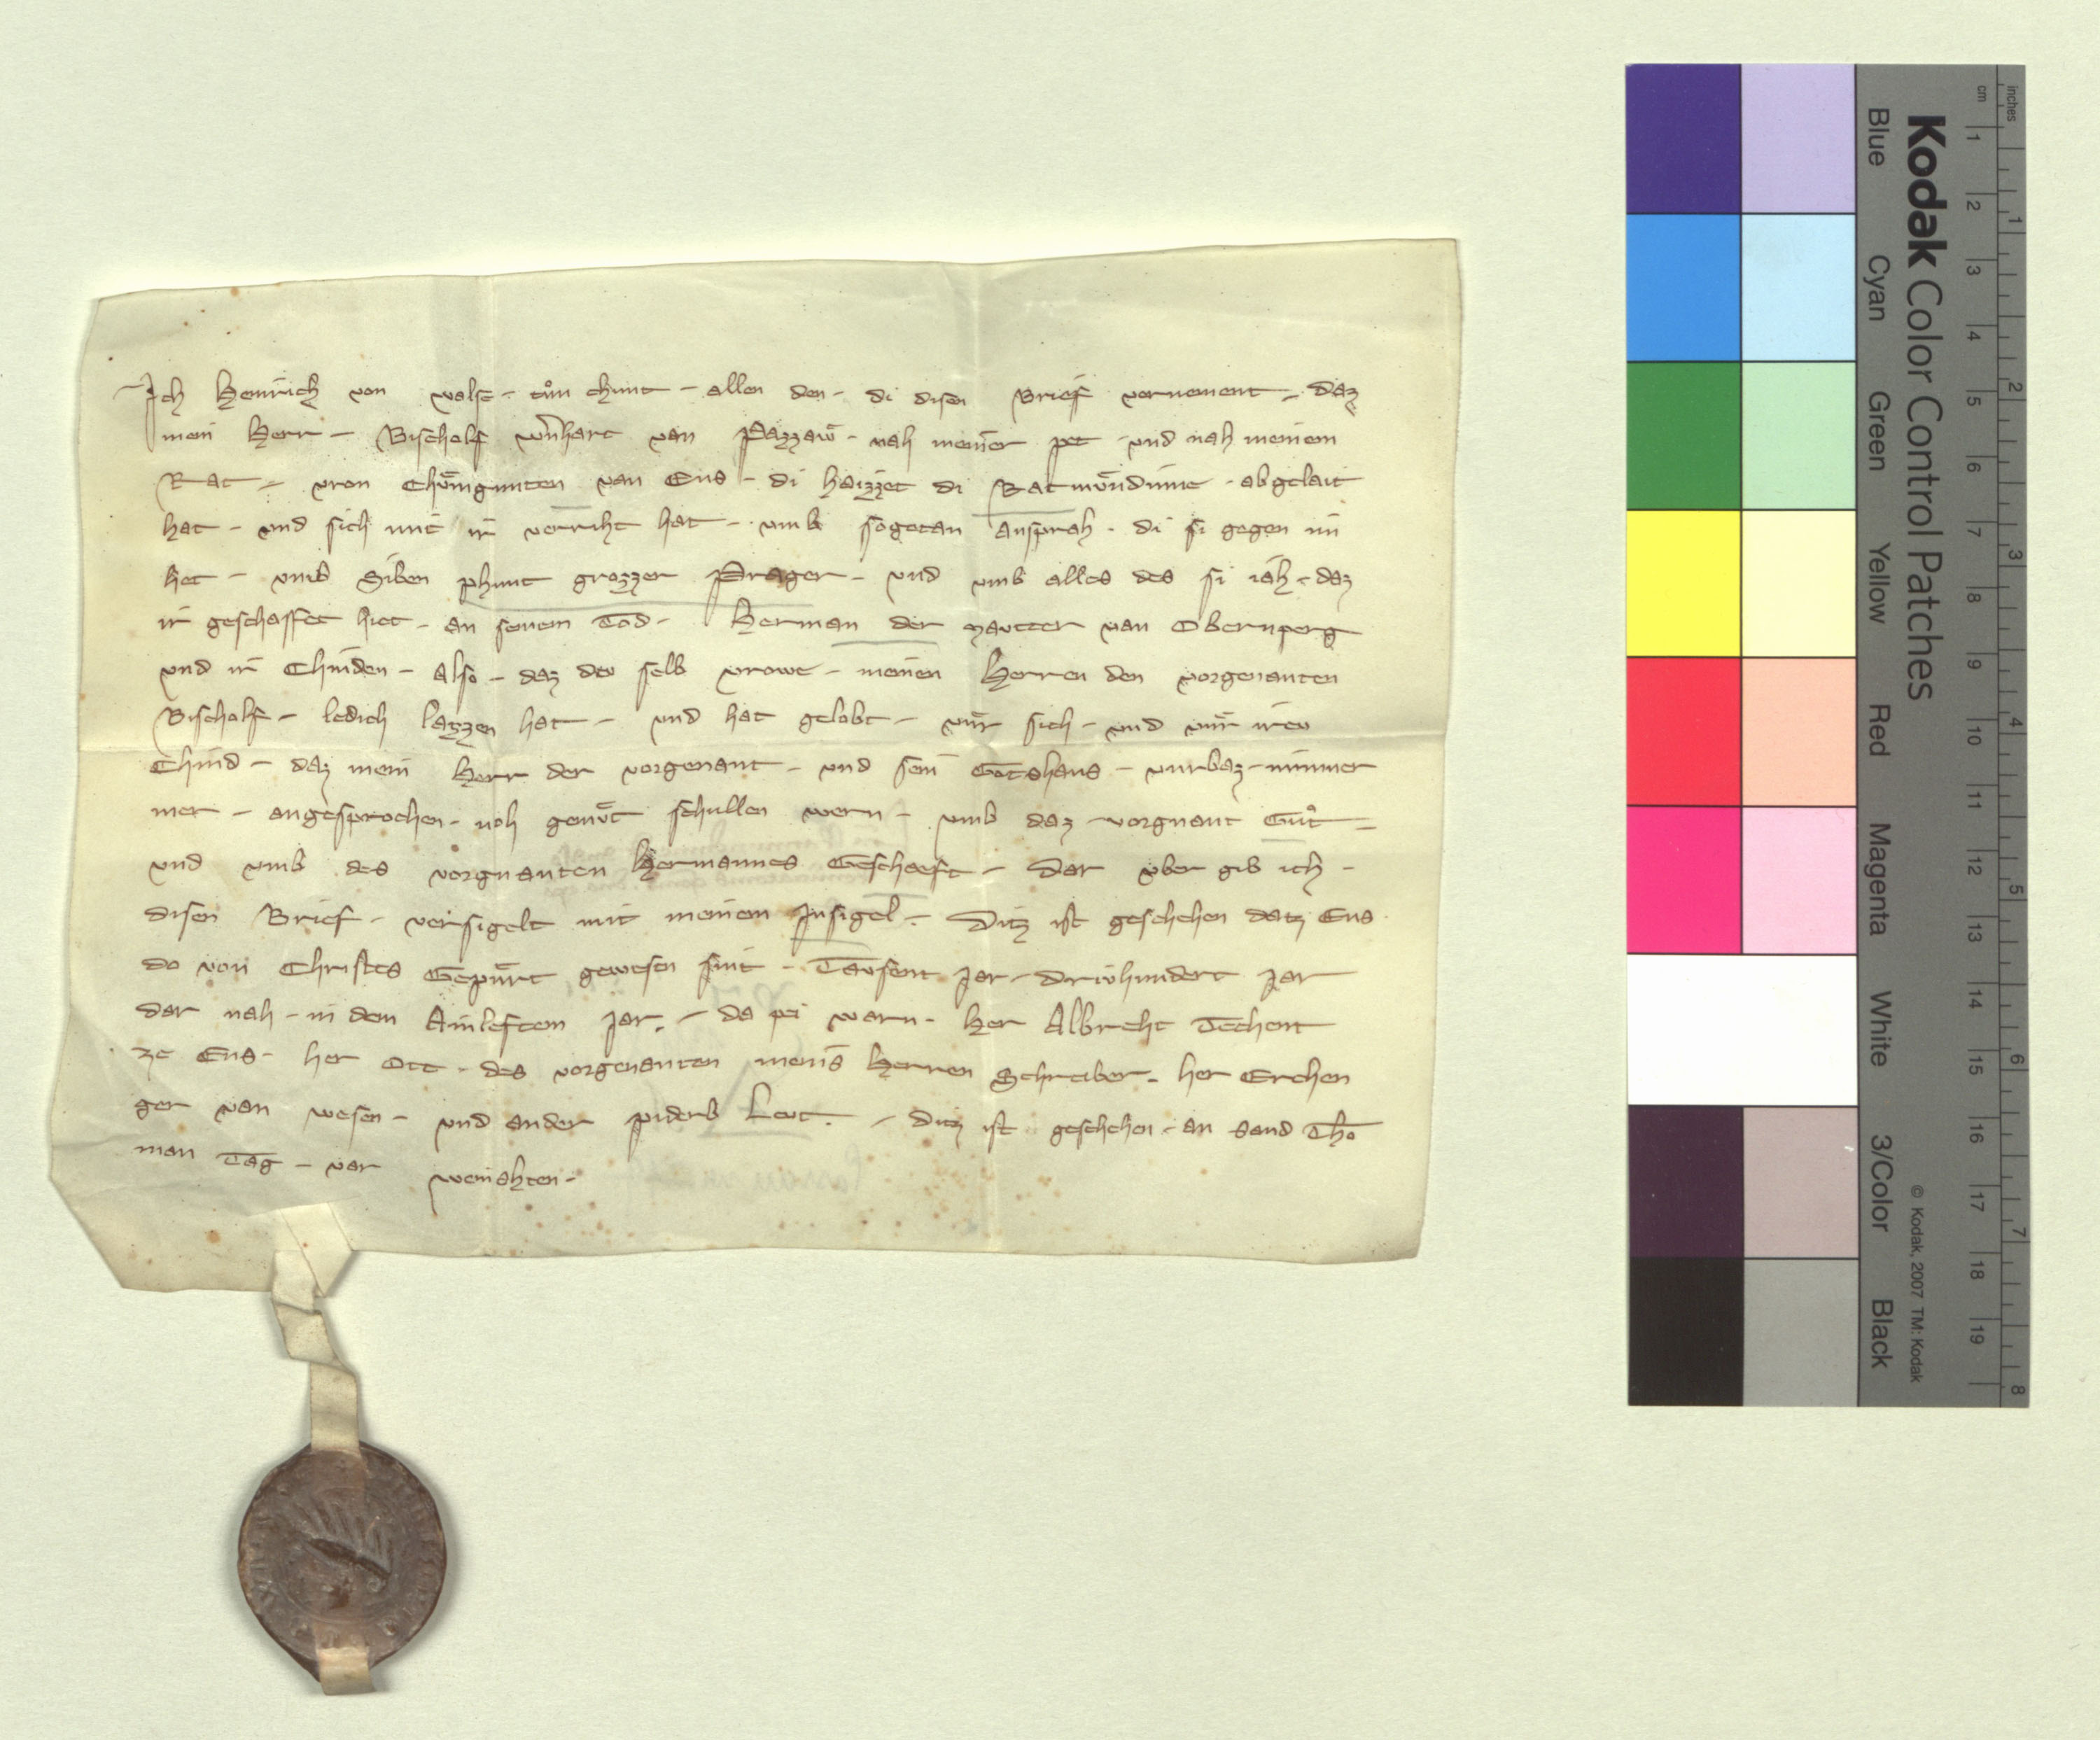 Ich Heinrich von Walse - tůn chunt - allen den - di disen Brief vernement - daz
mein Herr - Bischolf Wernhart van Pazzaw̄ - nah meiner pet - und nah meinem
Rat - vron Chv̈nigunten van Ens - di haizzet di Ratmv̈ndinne - abgelait
hat - und sich mit ir verriht hat - umb sogetan ansprah - di si gegen im
het - umb Siben phunt grozzer Prager - und umb alles des si iah - daz
ir geschaffet hiet - an seinem Tod - Herman der Mautter van Obernperg
und ir Chinden - also - daz dev selb vrowe - meinen Herren den vorgenanten
Bischolf - ledich lazzen hat - und hat gelobt - vuͤr sich - und vuͤr irev
Chind - daz mein Herr der vorgenant - und sein Gotshaus - vurbaz - nimmer
mer - angesprochen - noh genoͤt schullen wern - umb daz vorgnant Guͦt -
und umb des vorgnanten Hermannes Geschaeft - Dar vber gib ich -
disen Brief - versigelt mit meinem Insigel - Ditz ist geschehen datz Ens
do von Christes Gepuͤrt gewesen sint - Tausent Jar - Drivhundert Jar
dar nah - in dem Ainleftem Jar. - da pei warn - Her Albreht Techent
ze Ens - her Ott - des vorgenanten meins Herren Schreiber - her Erchen
ger van Wesen - und ander piderb Leut. - Ditz ist geschehen - an sand Tho
man Tag - vor Weinahten -
Kodak Color Control Patches
Blue
Cyan
Green
Yellow
Red
Magenta
White
3/Color
Black
inches
1
2
3
4
5
6
7
8
cm
1
2
3
4
5
6
7
8
9
10
11
12
13
14
15
16
17
18
19
© Kodak, 2007 TM: Kodak